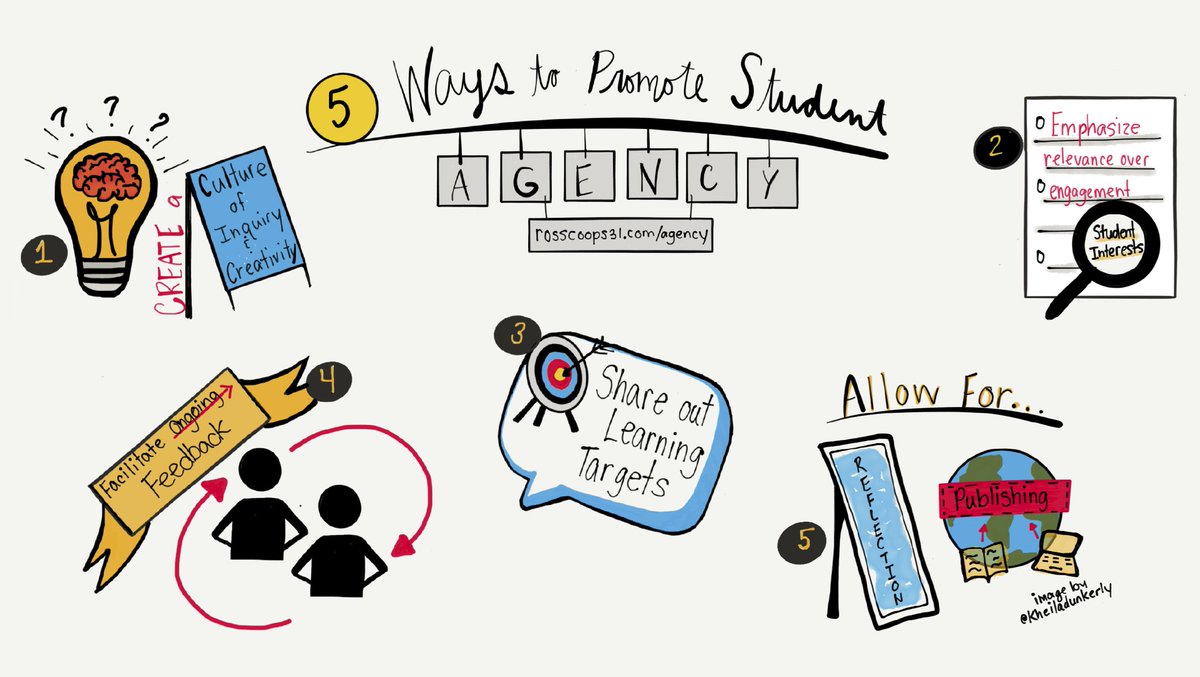 5 Ways to Promote Student
AGENCY
rosscoops31.com/agency
? ? ?
1
CREATE a
Culture
of
Inquiry
&
Creativity
2
Emphasize
relevance over
engagement
Student
Interests
3
Share out
Learning
Targets
4
Facilitate Ongoing
Feedback
5
Allow For...
REFLECTION
Publishing
image by
@Kheiladunkerly